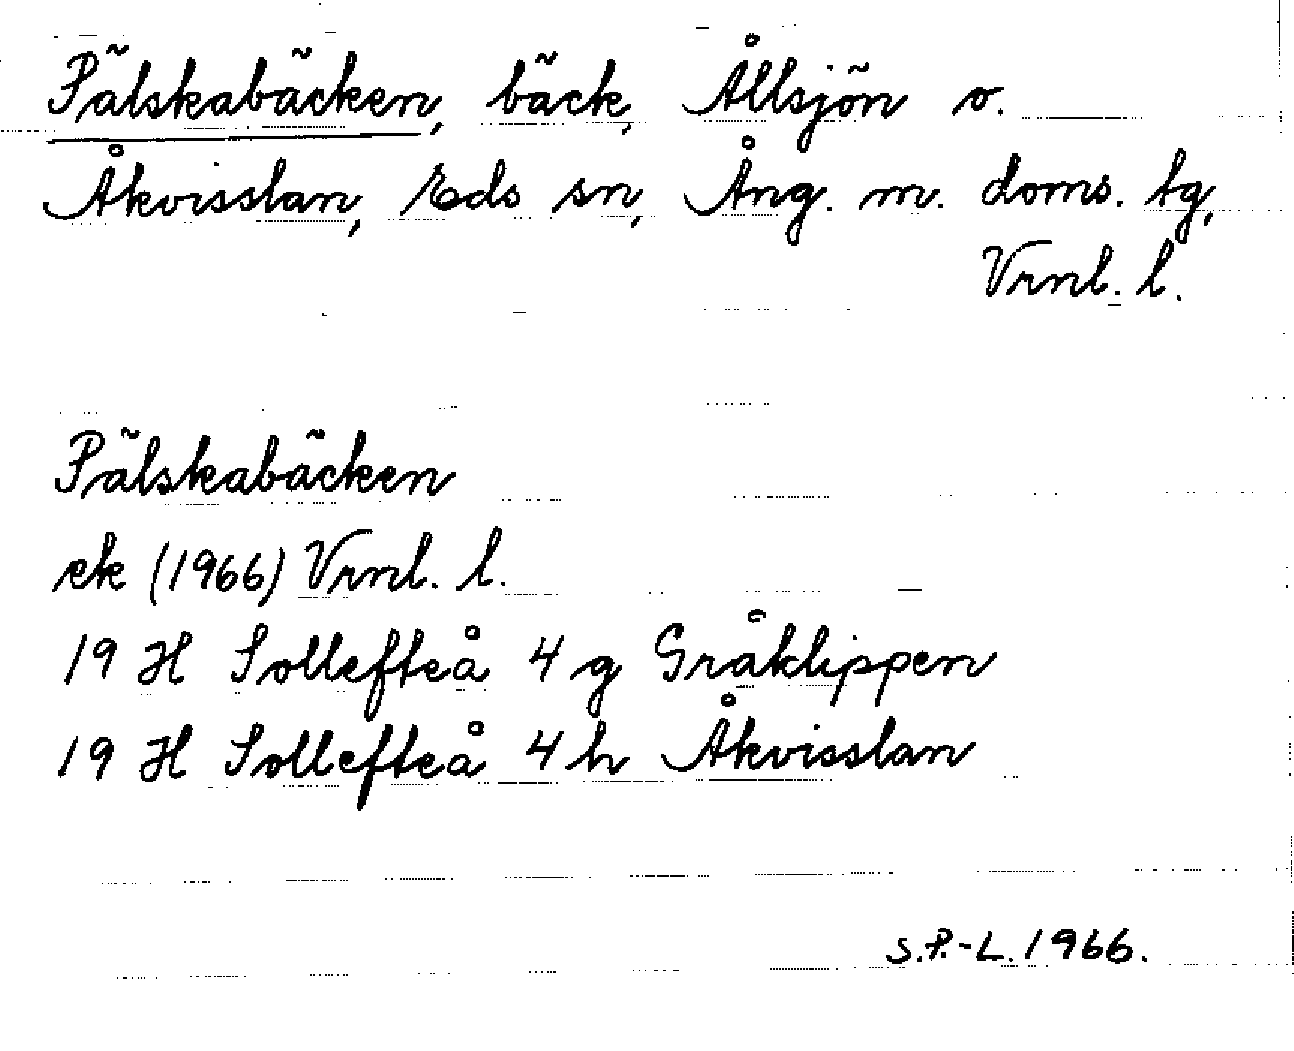 Pälskabäcken, bäck, Ållsjön o.
Åkvisslan, Eds sn, Ång. m. doms. tg,
Vrnl. l.
Pälskabäcken
ek (1966) Vrnl. l.
19 H Sollefteå 4 g Gråklippen
19 H Sollefteå 4 h Åkvisslan
S.P.-L. 1966.